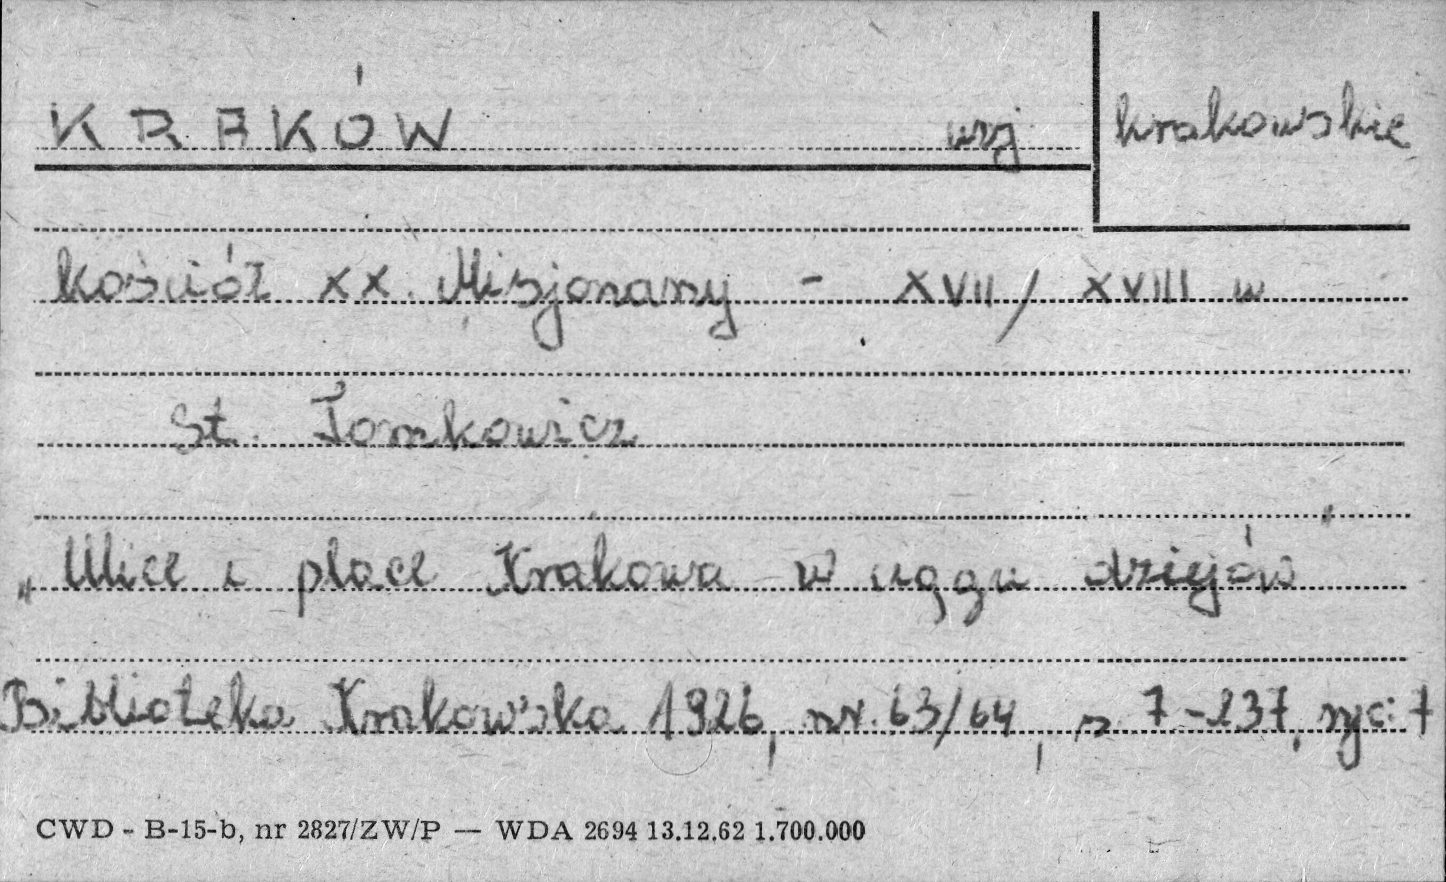 KRAKÓW woj krakowskie
kościół XX. Misjonarzy - XVII/XVIII w
St. Tomkowicz
„Ulice i place Krakowa w ciągu dziejów"
Biblioteka Krakowska 1926, nr. 63/64, s 7-237, ryc: 7
CWD - B-15-b, nr 2827/ZW/P — WDA 2694 13.12.62 1.700.000